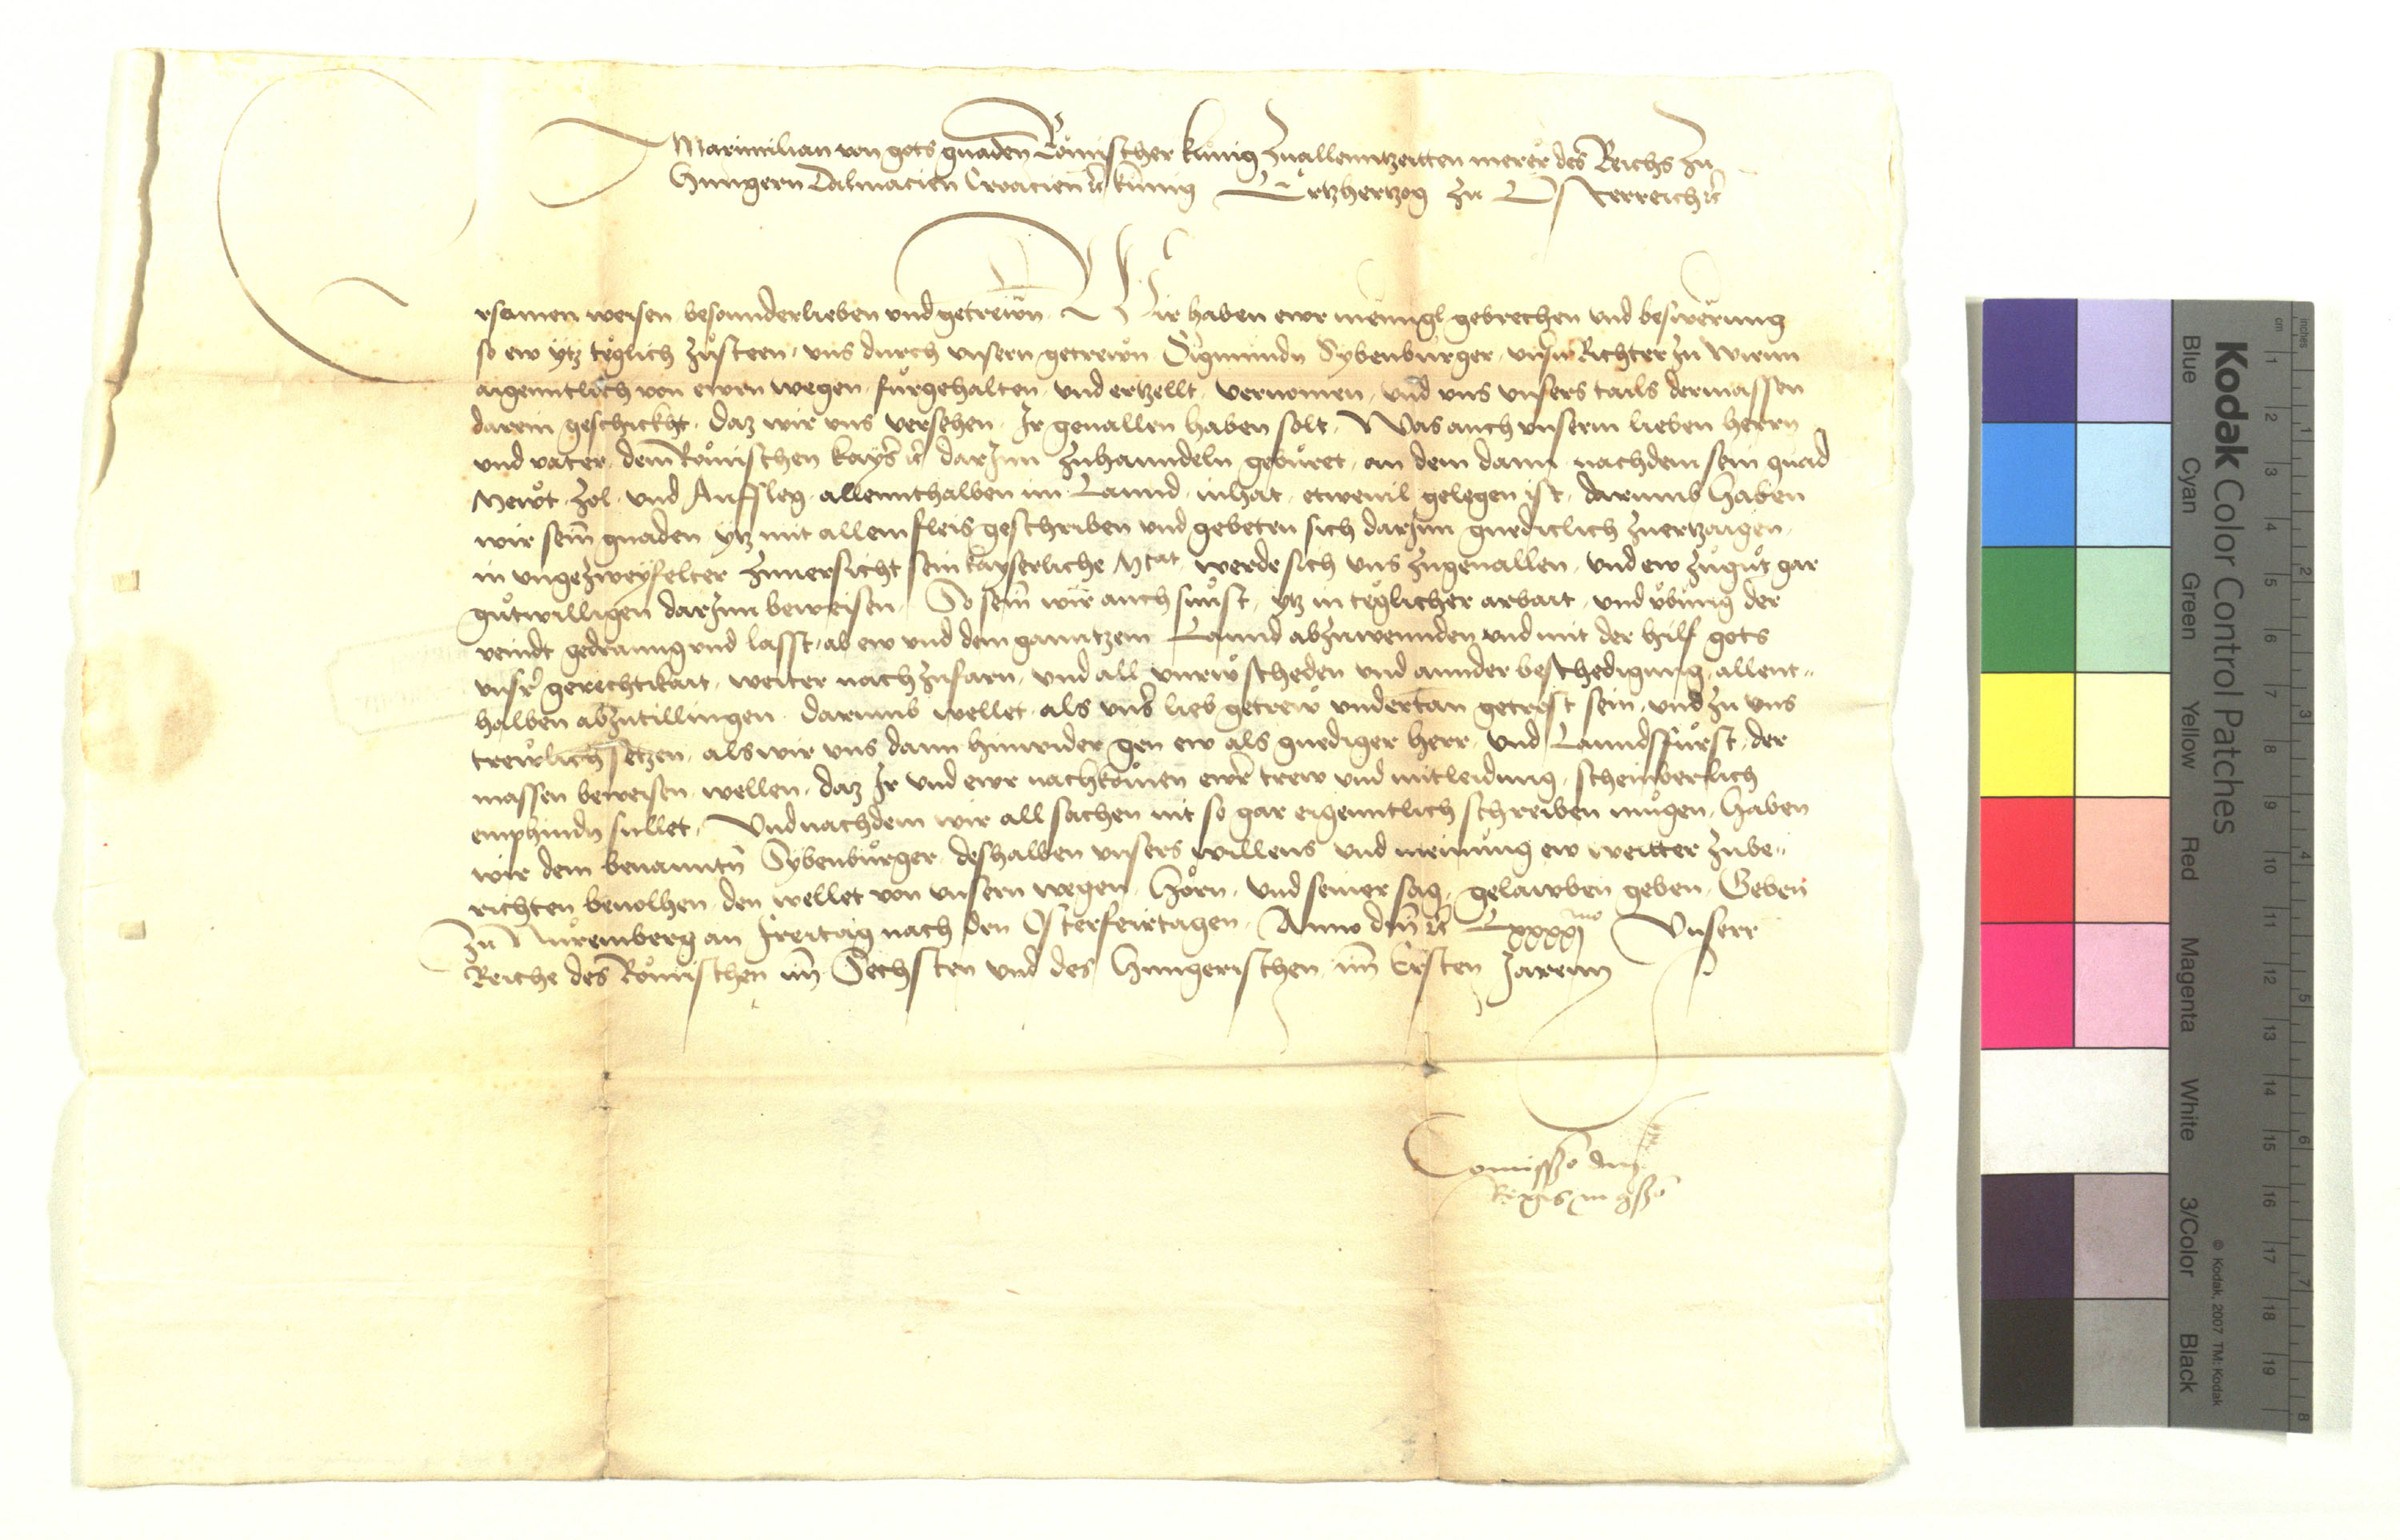 Maximilian von gots gnaden Römischer künig zuallenntzeitten merer des Reichs zu
Hungern Dalmacien Croacien ꝛc künig Ertzhertzog zu Osterreich ꝛc
Ersamen weisen besonnderlieben und getrewn Wir haben ewr menigl gebrechen und beswerung
so ew ytz teglich zusteen, uns durch unsern getrewn Sigmundn Sybenburger, unsrn Richter zu Wienn
aigenntlich von ewrn wegen, furgehalten, und ertzellt, vernomen, und uns unsers tails dermassen
darein geschickht, daz wir uns versehen, Ir geuallen haben solt, Was auch unserm lieben herrn
und vater, dem Römischen kaysr ꝛc darInn zuhanndeln gebüret, an dem dann nachdem sein gnad
Mewt, Zol, und Auffsleg, allennthalben im Lannd, inhat, etweuil gelegen ist, darumb haben
wir sein gnaden ytz mit allem fleis geschriben und gebeten sich darInn gnediclich zuertzaigen,
in ungezweyfelter zuuersicht sein kayserliche Mtat, werde sich uns zugeuallen, und ew zugüt gar
gütwilligen darInn beweisen, So sein wir auch sunst, ytz in teglicher arbait, und übung der
veindt gedranng und lasst, ab ew und dem ganntzem Lannd abzuwennden und mit der hilf gots
unsrr gerechtikait, weiter nachzufarn, und all unrw scheden und annder beschedigung, allent„
halben abzutillingen, darumb wellet, als unsr lieb getrew undertan getröst sein, und zu uns
trewlich setzen, als wir uns dann hinwider gen ew als gnediger herr, und Lanndsfürst, der
massen beweisen wellen, daz Ir und ewr nachkomen ewrr trew und mitleidung, scheinberlich
emphindn sullet, Und nachdem wir all sachen nit so gar eigenntlich schreiben mügen, haben
wir dem benanntn Sybenbürger, deshalben unsers willens und meinung ew weitter zube„
richten beuolhen, den wellet von unsern wegen, hörn, und seiner sag, gelawben geben, Geben
zu Nüremberg an Freitag nach den Osterfeirtagen, Anno dm̃ ꝛc Lxxxxjmo Unserr
Reiche des Römischen im Sechsten und des Hungerischen im Ersten Jarenn
Comissio dm̃
Regis in ꝯsio
Kodak Color Control Patches
Blue Cyan Green Yellow Red Magenta White 3/Color Black
© Kodak, 2007 TM: Kodak
cm 1 2 3 4 5 6 7 8 9 10 11 12 13 14 15 16 17 18 19
inches 1 2 3 4 5 6 7 8